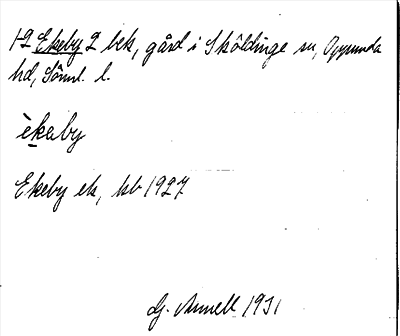 1-2 Ekeby 2 bek, gård i Sköldinge sn, Oppunda
hd, Sörml. l.
èkaby
Ekeby ek, kb 1927
G. Annell 1931